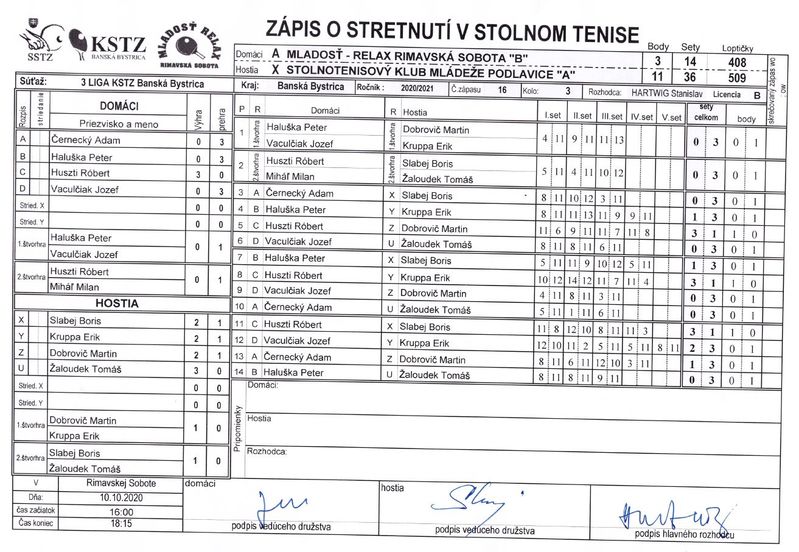 SSTZ
KSTZ
BANSKÁ BYSTRICA
MLADOSŤ RELAX
RIMAVSKÁ SOBOTA
ZÁPIS O STRETNUTÍ V STOLNOM TENISE
Body Sety Loptičky
Domáci A MLADOSŤ - RELAX RIMAVSKÁ SOBOTA "B" 3 14 408
Hostia X STOLNOTENISOVÝ KLUB MLÁDEŽE PODLAVICE "A" 11 36 509
Súťaž: 3 LIGA KSTZ Banská Bystrica
Kraj: Banská Bystrica Ročník : 2020/2021 Č.zápasu 16 Kolo: 3 Rozhodca: HARTWIG Stanislav Licencia B
skrečovaný zápas wo
Rozpis striedanie DOMÁCI Výhra prehra
Priezvisko a meno
A Černecký Adam 0 3
B Haluška Peter 0 3
C Huszti Róbert 3 0
D Vaculčiak Jozef 0 3
Stried. X 0 0
Stried. Y 0 0
1.štvorhra Haluška Peter 0 1
Vaculčiak Jozef
2.štvorhra Huszti Róbert 0 1
Miháľ Milan
HOSTIA
X Slabej Boris 2 1
Y Kruppa Erik 2 1
Z Dobrovič Martin 2 1
U Žaloudek Tomáš 3 0
Stried. X 0 0
Stried. Y 0 0
1.štvorhra Dobrovič Martin 1 0
Kruppa Erik
2.štvorhra Slabej Boris 1 0
Žaloudek Tomáš
P R Domáci R Hostia I.set II.set III.set IV.set V.set sety celkom body
1 1.štvorhra Haluška Peter 1.štvorhra Dobrovič Martin 4 11 9 11 11 13 0 3 0 1
Vaculčiak Jozef Kruppa Erik
2 2.štvorhra Huszti Róbert 2.štvorhra Slabej Boris 5 11 4 11 10 12 0 3 0 1
Miháľ Milan Žaloudek Tomáš
3 A Černecký Adam X Slabej Boris 8 11 10 12 3 11 0 3 0 1
4 B Haluška Peter Y Kruppa Erik 8 11 11 13 11 9 9 11 1 3 0 1
5 C Huszti Róbert Z Dobrovič Martin 11 6 9 11 11 7 11 8 3 1 1 0
6 D Vaculčiak Jozef U Žaloudek Tomáš 8 11 8 11 6 11 0 3 0 1
7 B Haluška Peter X Slabej Boris 5 11 11 9 10 12 5 11 1 3 0 1
8 C Huszti Róbert Y Kruppa Erik 10 12 14 12 11 7 11 4 3 1 1 0
9 D Vaculčiak Jozef Z Dobrovič Martin 4 11 8 11 3 11 0 3 0 1
10 A Černecký Adam U Žaloudek Tomáš 5 11 1 11 6 11 0 3 0 1
11 C Huszti Róbert X Slabej Boris 11 8 12 10 8 11 11 3 3 1 1 0
12 D Vaculčiak Jozef Y Kruppa Erik 12 10 11 2 5 11 5 11 8 11 2 3 0 1
13 A Černecký Adam Z Dobrovič Martin 8 11 8 11 12 10 3 11 1 3 0 1
14 B Haluška Peter U Žaloudek Tomáš 8 11 8 11 9 11 0 3 0 1
Pripomienky
Domáci:
Hostia
Rozhodca:
V Rimavskej Sobote
Dňa: 10.10.2020
čas začiatok 16:00
Čas koniec 18:15
domáci
podpis vedúceho družstva
hostia
podpis vedúceho družstva
podpis hlavného rozhodcu